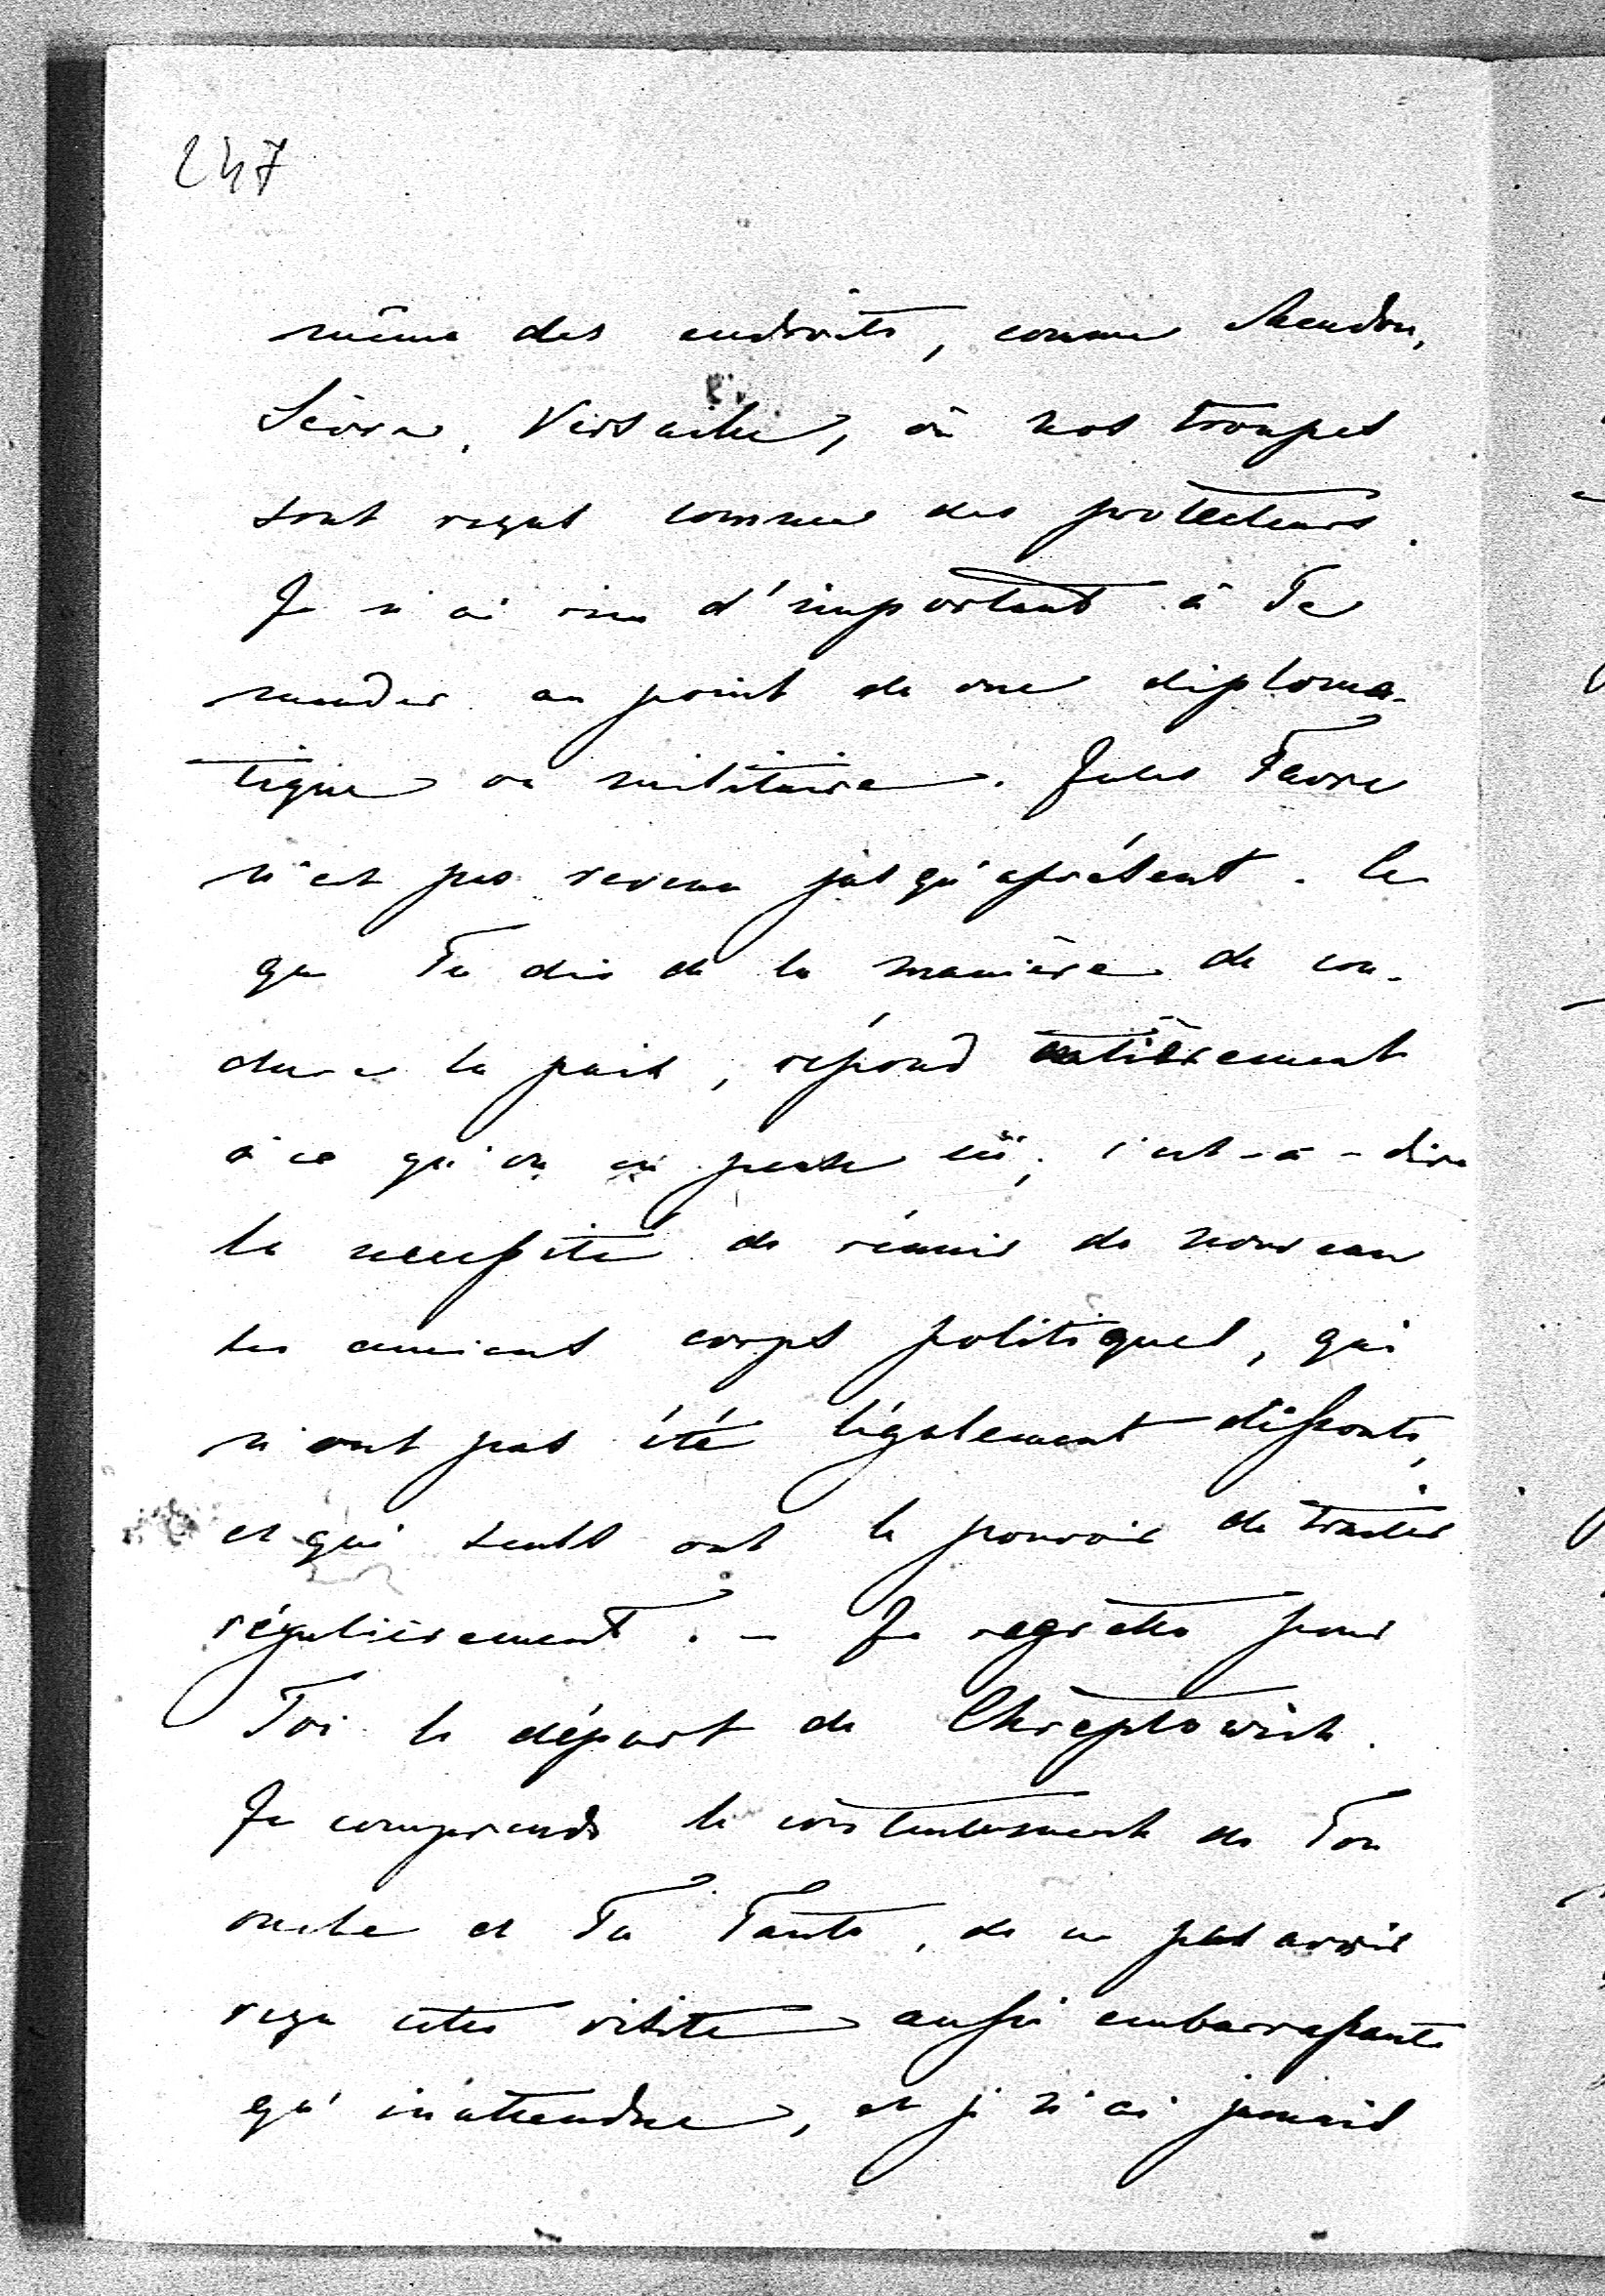 247
même des endroits, comme Meudon,
Sèvres, Versailles, où nos troupes
sont reçus comme des protecteurs.
Je n'ai rien d'important à Te
mander au point de vue diploma-
tique ou militaire. Jules Favre
n'est pas revenu jusqu'àprésent. Ce
que Tu dis de la manière de con-
clure la paix, répond entièrement
à ce qu'on en pense ici, c'est-à-dire
la necessité de réunir de nouveau
les anciens corps politiques, qui
n'ont pas été légalement dissouts,
et qui seuls ont le pouvoir de traiter
régulièrement. – Je regrette pour
Toi le départ de Chreptowich.
Je comprends le contentement de Ton
oncle et Ta Tante, de ne pas avoir
reçu cette visite aussi embarrassante
qu'inattendue, et je n'ai jamais